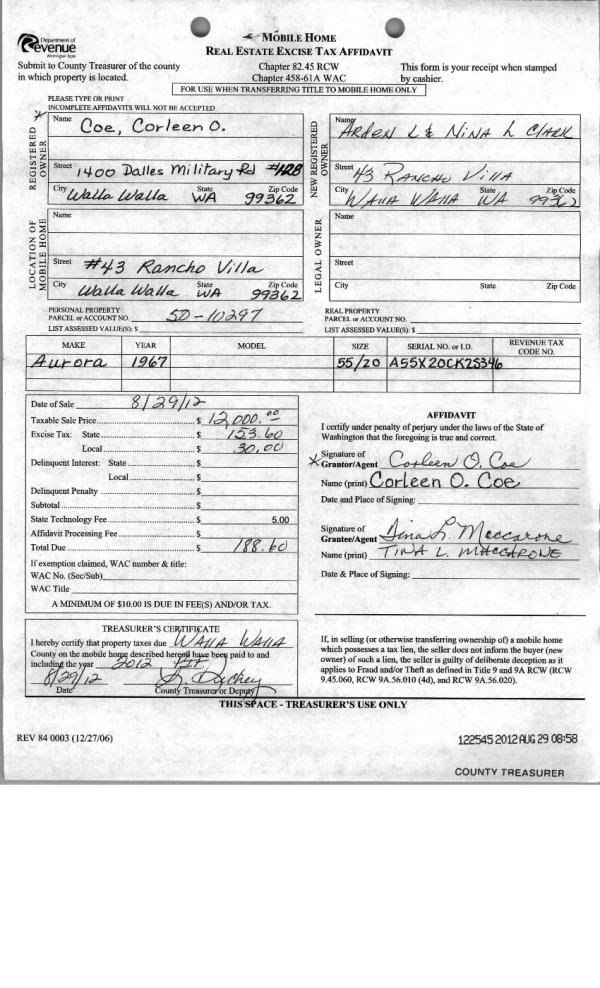 Department of
Revenue
Washington State
MOBILE HOME
REAL ESTATE EXCISE TAX AFFIDAVIT
Submit to County Treasurer of the county
in which property is located.
Chapter 82.45 RCW
Chapter 458-61A WAC
This form is your receipt when stamped
by cashier.
FOR USE WHEN TRANSFERRING TITLE TO MOBILE HOME ONLY
PLEASE TYPE OR PRINT
INCOMPLETE AFFIDAVITS WILL NOT BE ACCEPTED
REGISTERED OWNER
Name Coe, Corleen O.
Street 1400 Dalles Military Rd #128
City Walla Walla State WA Zip Code 99362
NEW REGISTERED OWNER
Name Arden L & Nina L Clark
Street 43 Rancho Villa
City Walla Walla State WA Zip Code 99362
LOCATION OF MOBILE HOME
Name
Street #43 Rancho Villa
City Walla Walla State WA Zip Code 99362
LEGAL OWNER
Name
Street
City State Zip Code
PERSONAL PROPERTY
PARCEL or ACCOUNT NO. 50-10297
LIST ASSESSED VALUE(S): $
REAL PROPERTY
PARCEL or ACCOUNT NO.
LIST ASSESSED VALUE(S): $
MAKE YEAR MODEL SIZE SERIAL NO. or I.D. REVENUE TAX CODE NO.
Aurora 1967 55/20 A55X20CK2S346
Date of Sale 8/29/12
Taxable Sale Price $ 12,000.00
Excise Tax: State $ 153.60
Local $ 30.00
Delinquent Interest: State $
Local $
Delinquent Penalty $
Subtotal $
State Technology Fee $ 5.00
Affidavit Processing Fee $
Total Due $ 188.60
If exemption claimed, WAC number & title:
WAC No. (Sec/Sub)
WAC Title
A MINIMUM OF $10.00 IS DUE IN FEE(S) AND/OR TAX.
AFFIDAVIT
I certify under penalty of perjury under the laws of the State of
Washington that the foregoing is true and correct.
Signature of
Grantor/Agent Corleen O. Coe
Name (print) Corleen O. Coe
Date and Place of Signing:
Signature of
Grantee/Agent Tina L. Maccarone
Name (print) TINA L. MACCARONE
Date & Place of Signing:
TREASURER'S CERTIFICATE
I hereby certify that property taxes due Walla Walla
County on the mobile home described hereon have been paid to and
including the year 2012
8/29/12
Date County Treasurer or Deputy
If, in selling (or otherwise transferring ownership of) a mobile home
which possesses a tax lien, the seller does not inform the buyer (new
owner) of such a lien, the seller is guilty of deliberate deception as it
applies to Fraud and/or Theft as defined in Title 9 and 9A RCW (RCW
9.45.060, RCW 9A.56.010 (4d), and RCW 9A.56.020).
THIS SPACE - TREASURER'S USE ONLY
REV 84 0003 (12/27/06)
122545 2012 AUG 29 08:58
COUNTY TREASURER